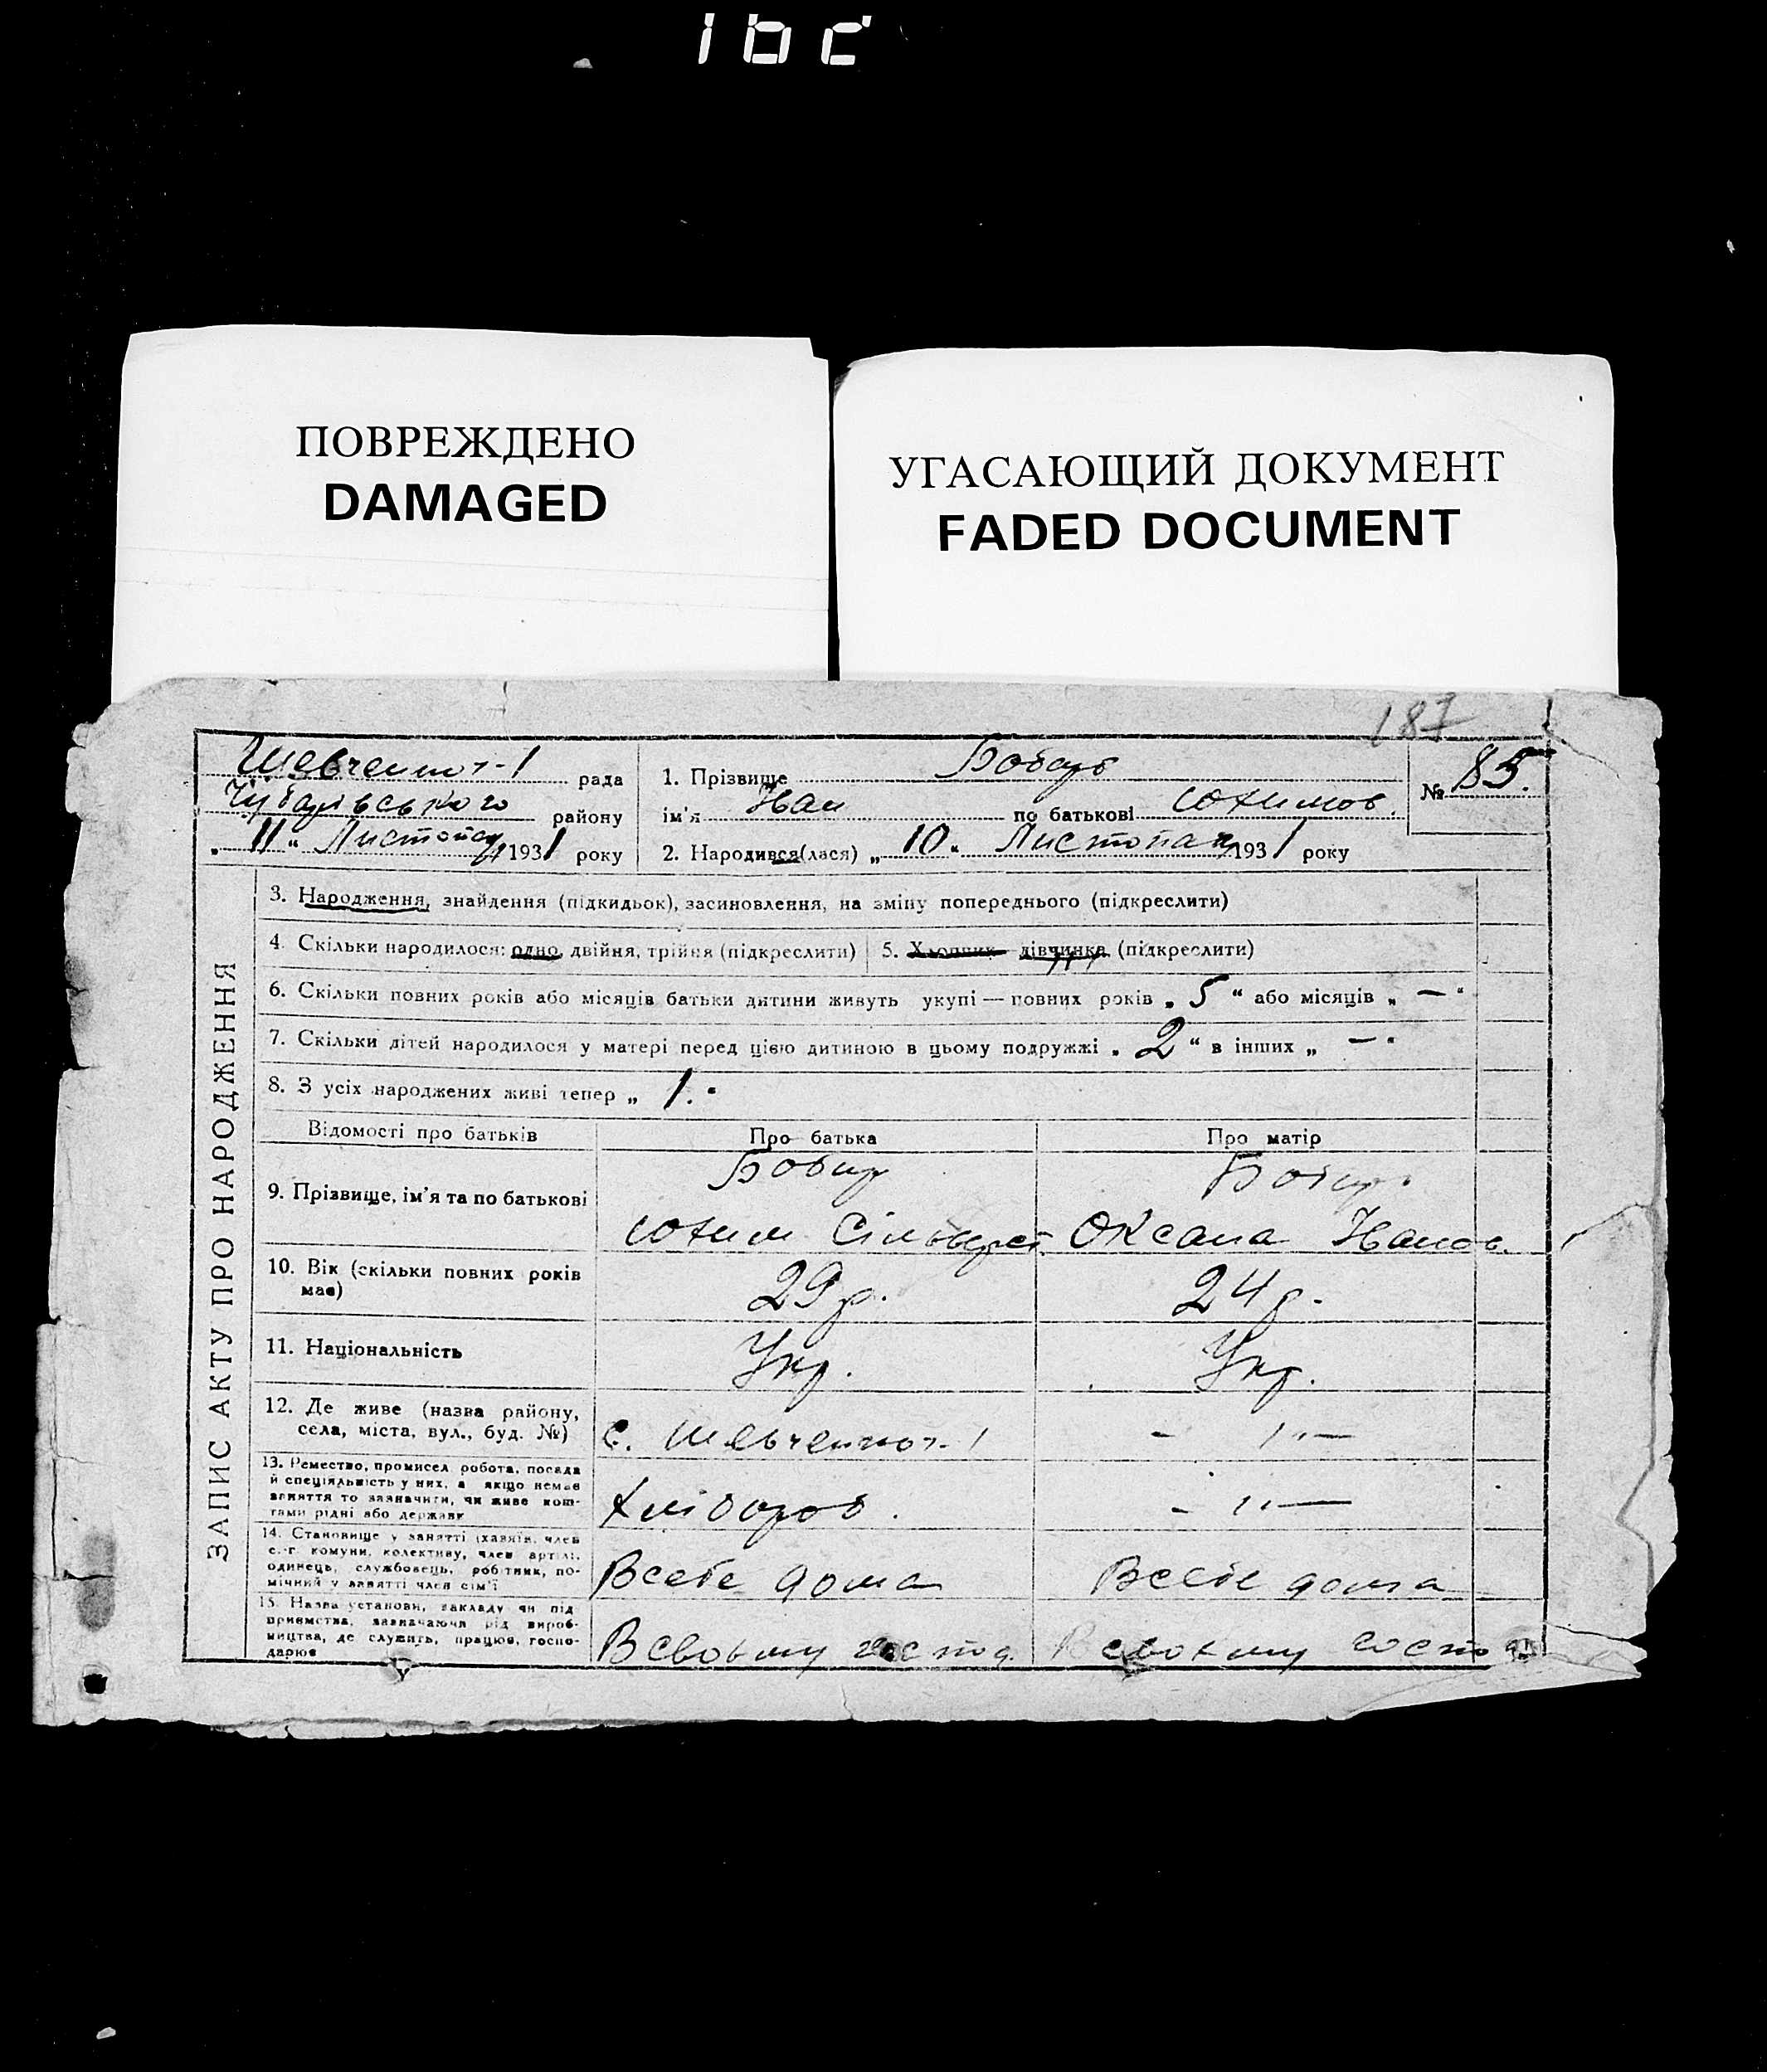 ПОВРЕЖДЕНО
DAMAGED
УГАСАЮЩИЙ ДОКУМЕНТ
FADED DOCUMENT
187
рада
Чубарівського району
„ 11 “ Листопад 1931 року
1. Прізвище Бобирь
ім'я Іван по батькові Юхимов.
№ 85.
2. Народився(лася) „ 10 “ Листопад 1931 року
ЗАПИС АКТУ ПРО НАРОДЖЕННЯ
3. Народження, знайдення (підкидьок), засиновлення, на зміну попереднього (підкреслити)
4. Скільки народилося: одно, двійня, трійня (підкреслити)
5. Хлопчик дівчинка (підкреслити)
6. Скільки повних років або місяців батьки дитини живуть укупі — повних років „ 5 “ або місяців „ — “
7. Скільки дітей народилося у матері перед цією дитиною в цьому подружжі „ 2 “ в інших „ — “
8. З усіх народжених живі тепер „ 1. “
Відомості про батьків
Про батька
Про матір
9. Прізвище, ім'я та по батькові
Бобир
Юхим Сільвест.
Бобир.
Оксана Іванов.
10. Вік (скільки повних років
має)
29 р.
24 р.
11. Національність
Укр.
Укр.
12. Де живе (назва району,
села, міста, вул., буд. №)
с.
— " —
13. Ремество, промисел робота, посада
й спеціяльність у них, а якщо немає
заняття то зазначити, чи живе кош-
тами рідні або держави
Хлібороб.
— " —
14. Становище у занятті (хазяїн, член
с.-г. комуни, колективу, член артілі,
одинець, службовець, робітник, по-
мічний у занятті член сім'ї
Всебе дома
Всебе дома
15. Назва установи, закладу чи під
приємства, зазначаючи рід вироб-
ництва, де служить, працює, госпо-
дарює
В своьму господ.
В своьму господ